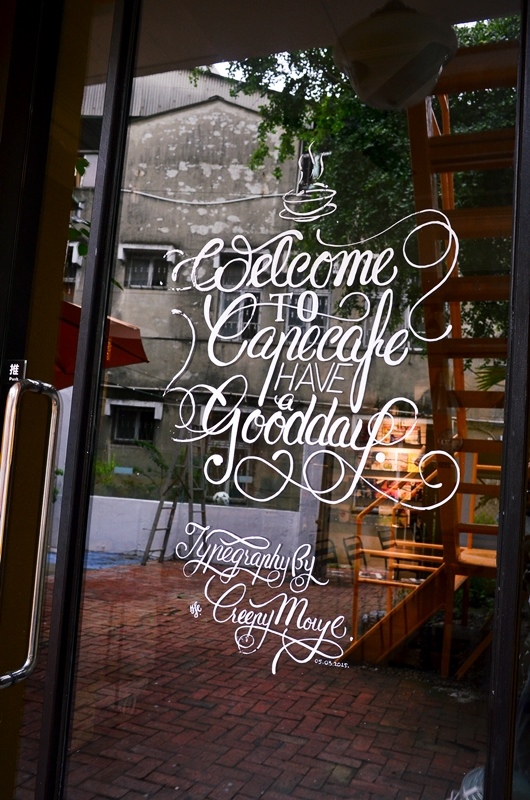 推
Push
Welcome
TO
Capecafe
HAVE
a
Goodday
Typegraphy By
Creepy Mouse.
05.03.2015.